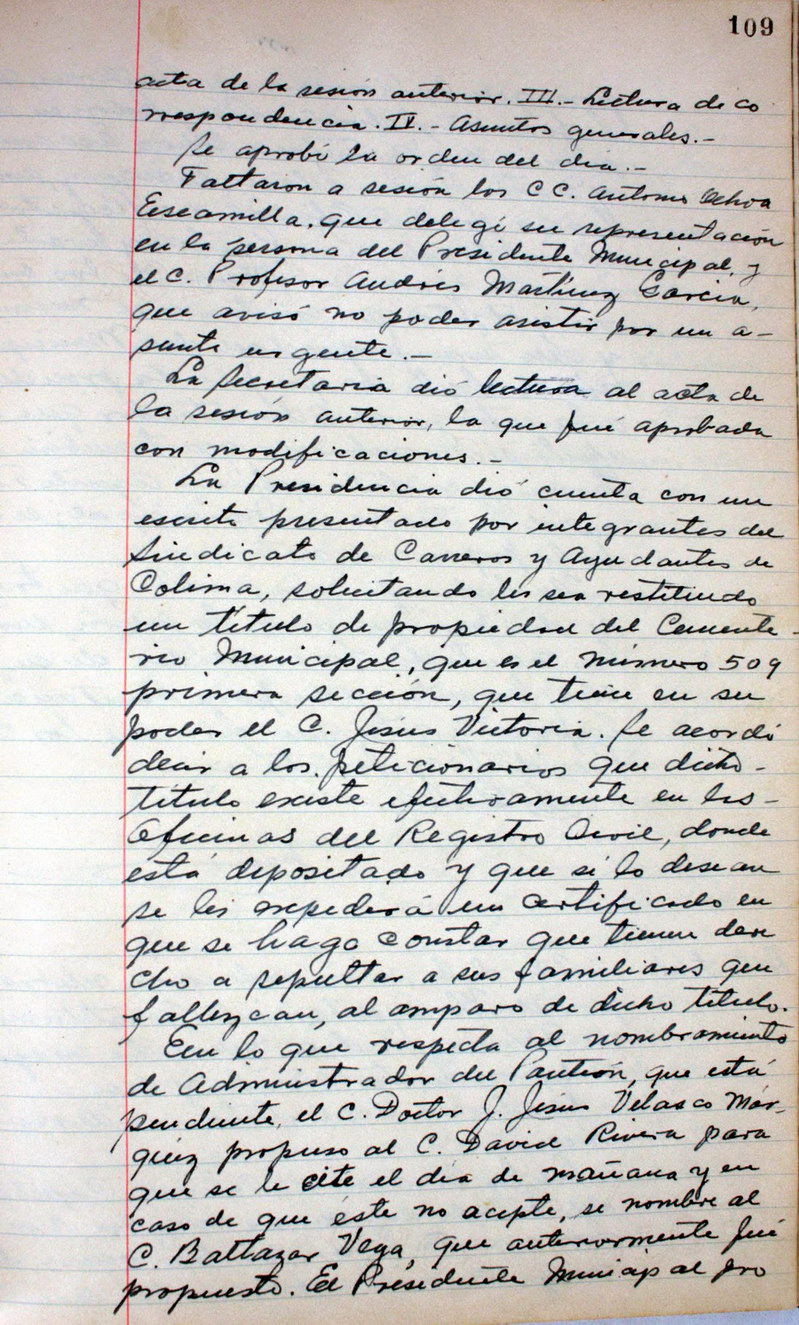 109
acta de la sesión anterior. III.- Lectura de co
rrespondencia. IV.- Asuntos generales.-
Se aprobó la orden del día.-
Faltaron a sesión los CC. Antonio Ochoa
Escamilla, que delegó su representación
en la persona del Presidente Municipal, y
el C. Profesor Andrés Martínez García,
que avisó no poder asistir por un a-
sunto urgente.-
La Secretaria dió lectura al acta de
la sesión anterior, la que fué aprobada
con modificaciones.-
La Presidencia dió cuenta con un
escrito presentado por integrantes del
Sindicato de Carreros y Ayudantes de
Colima, solicitando les sea restituido
un título de propiedad del Cemente-
rio Municipal, que es el número 509
primera sección, que tiene en su
poder el C. Jesús Victoria. Se acordó
decir a los peticionarios que dicho-
título existe efectivamente en las-
Oficinas del Registro Civil, donde
está depositado y que si lo desean
se les expederá un certificado en
que se haga constar que tienen dere
cho a sepultar a sus familiares que
fallezcan, al amparo de dicho título.
En lo que respecta al nombramiento
de Administrador del Panteón, que está
pendiente, el C. Doctor J. Jesús Velasco Már-
quez propuso al C. David Rivera para
que se le cite el día de mañana y en
caso de que éste no acepte, se nombre al
C. Baltazar Vega, que anteriormente fué
propuesto. El Presidente Municipal pro